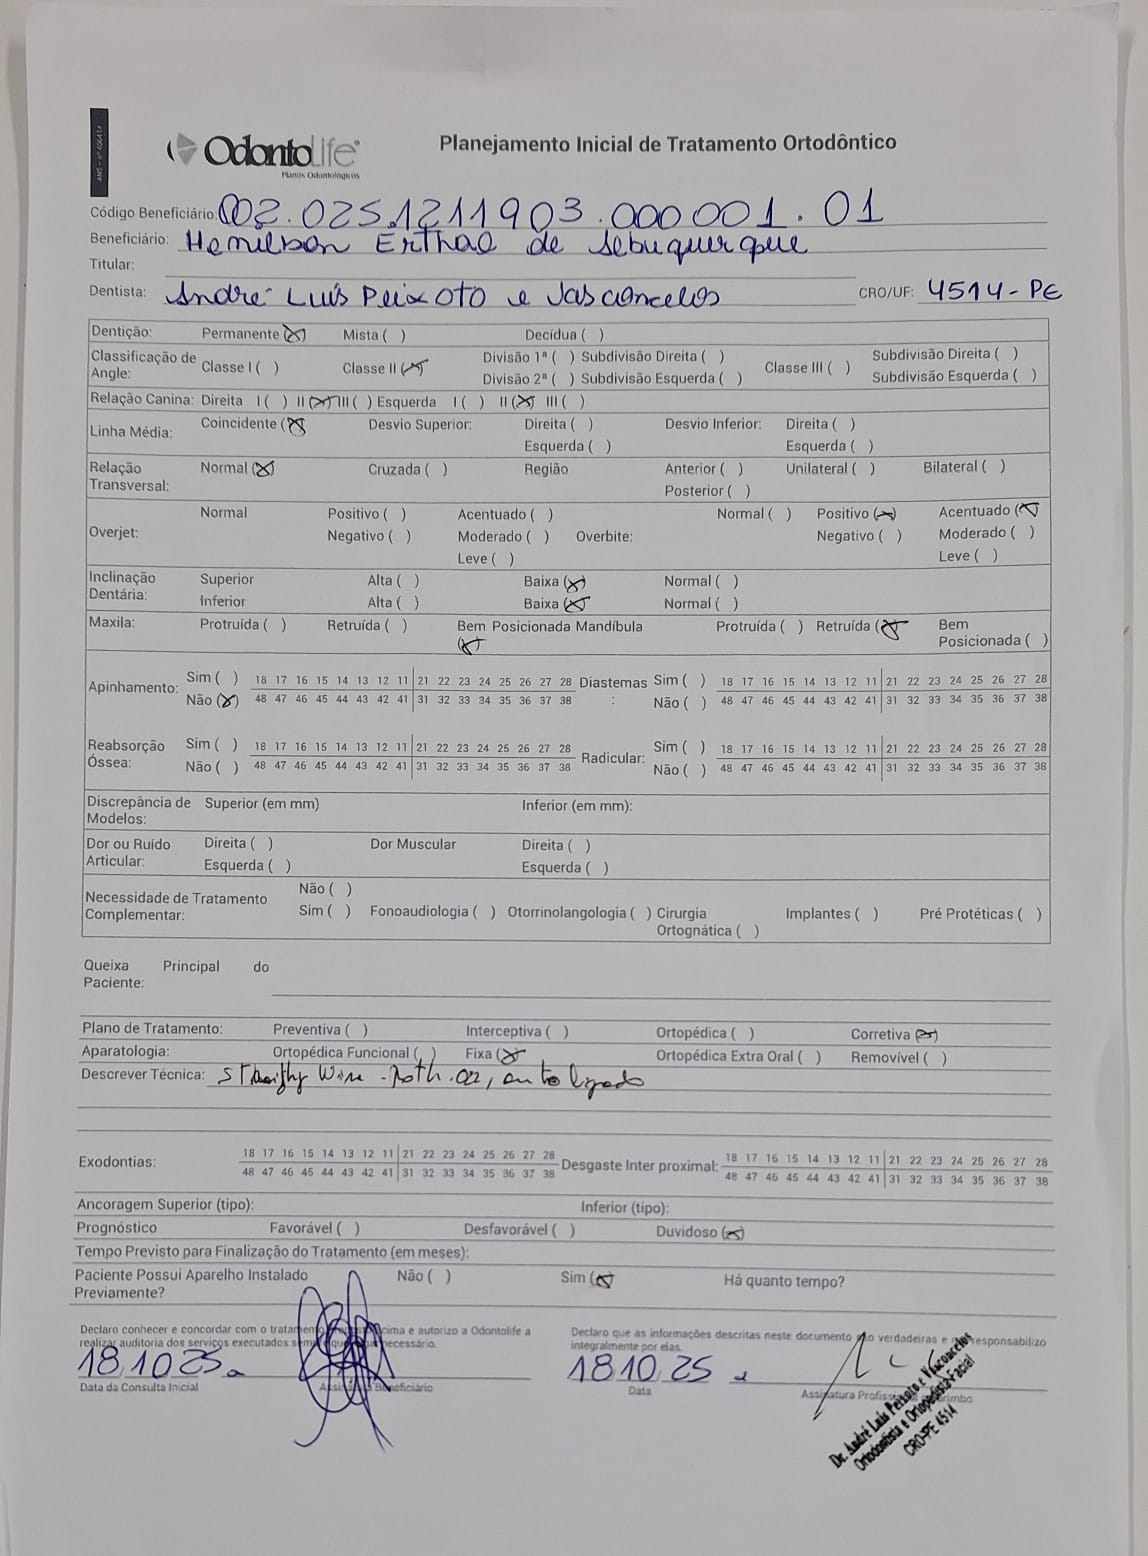 ANS - nº 406414
OdontoLife
Planos Odontológicos
Planejamento Inicial de Tratamento Ortodôntico
Código Beneficiário: 002.0251211903.000001.01
Beneficiário: Hemilson Erthal de Albuquerque
Titular:
Dentista: André Luís Peixoto e Vasconcelos CRO/UF: 4514-PE
Dentição: Permanente (X) Mista ( ) Decídua ( )
Classificação de Angle: Classe I ( ) Classe II (X) Divisão 1ª ( ) Subdivisão Direita ( ) Classe III ( ) Subdivisão Direita ( )
Divisão 2ª ( ) Subdivisão Esquerda ( ) Subdivisão Esquerda ( )
Relação Canina: Direita I ( ) II (X) III ( ) Esquerda I ( ) II (X) III ( )
Linha Média: Coincidente (X) Desvio Superior: Direita ( ) Desvio Inferior: Direita ( )
Esquerda ( ) Esquerda ( )
Relação Transversal: Normal (X) Cruzada ( ) Região Anterior ( ) Unilateral ( ) Bilateral ( )
Posterior ( )
Overjet: Normal Positivo ( ) Acentuado ( ) Overbite: Normal ( ) Positivo (X) Acentuado (X)
Negativo ( ) Moderado ( ) Negativo ( ) Moderado ( )
Leve ( ) Leve ( )
Inclinação Dentária: Superior Alta ( ) Baixa (X) Normal ( )
Inferior Alta ( ) Baixa (X) Normal ( )
Maxila: Protruída ( ) Retruída ( ) Bem Posicionada (X) Mandíbula Protruída ( ) Retruída (X) Bem Posicionada ( )
Apinhamento: Sim ( ) 18 17 16 15 14 13 12 11 21 22 23 24 25 26 27 28 Diastemas: Sim ( ) 18 17 16 15 14 13 12 11 21 22 23 24 25 26 27 28
Não (X) 48 47 46 45 44 43 42 41 31 32 33 34 35 36 37 38 Não ( ) 48 47 46 45 44 43 42 41 31 32 33 34 35 36 37 38
Reabsorção Óssea: Sim ( ) 18 17 16 15 14 13 12 11 21 22 23 24 25 26 27 28 Radicular: Sim ( ) 18 17 16 15 14 13 12 11 21 22 23 24 25 26 27 28
Não ( ) 48 47 46 45 44 43 42 41 31 32 33 34 35 36 37 38 Não ( ) 48 47 46 45 44 43 42 41 31 32 33 34 35 36 37 38
Discrepância de Modelos: Superior (em mm) Inferior (em mm):
Dor ou Ruído Articular: Direita ( ) Dor Muscular Direita ( )
Esquerda ( ) Esquerda ( )
Necessidade de Tratamento Complementar: Não ( )
Sim ( ) Fonoaudiologia ( ) Otorrinolangologia ( ) Cirurgia Ortognática ( ) Implantes ( ) Pré Protéticas ( )
Queixa Principal do Paciente:
Plano de Tratamento: Preventiva ( ) Interceptiva ( ) Ortopédica ( ) Corretiva (X)
Aparatologia: Ortopédica Funcional ( ) Fixa (X) Ortopédica Extra Oral ( ) Removível ( )
Descrever Técnica: Straight Wire Roth .022, autoligado
Exodontias: 18 17 16 15 14 13 12 11 21 22 23 24 25 26 27 28 Desgaste Inter proximal: 18 17 16 15 14 13 12 11 21 22 23 24 25 26 27 28
48 47 46 45 44 43 42 41 31 32 33 34 35 36 37 38 48 47 46 45 44 43 42 41 31 32 33 34 35 36 37 38
Ancoragem Superior (tipo): Inferior (tipo):
Prognóstico Favorável ( ) Desfavorável ( ) Duvidoso (X)
Tempo Previsto para Finalização do Tratamento (em meses):
Paciente Possui Aparelho Instalado Previamente? Não ( ) Sim (X) Há quanto tempo?
Declaro conhecer e concordar com o tratamento acima e autorizo a Odontolife a
realizar auditoria dos serviços executados sempre que necessário.
18 10 25
Data da Consulta Inicial Assinatura Beneficiário
Declaro que as informações descritas neste documento são verdadeiras e me responsabilizo
integralmente por elas.
18 10 25
Data Assinatura Profissional e Carimbo
Dr. André Luis Peixoto e Vasconcelos
Ortodontista e Ortopedista Facial
CRO-PE 4514